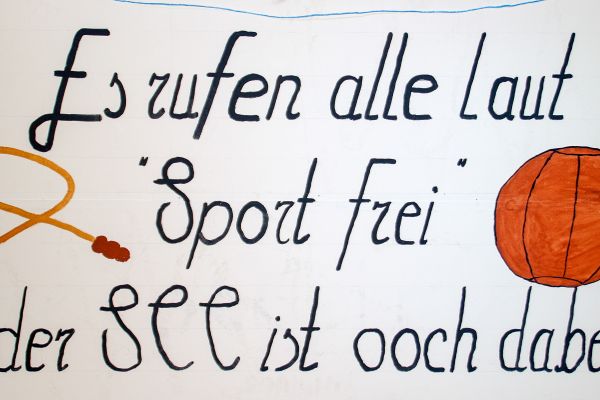 Es rufen alle laut
"Sport frei"
der SCC ist ooch dabe